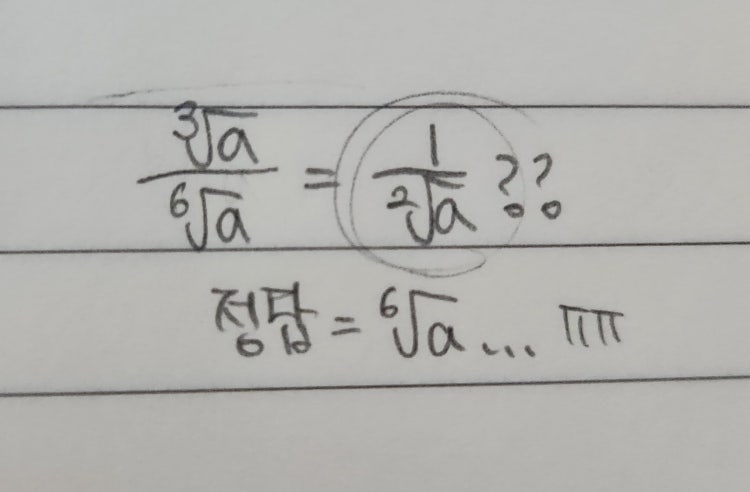 ∛a / ⁶√a = 1 / ²√a ??
정답 = ⁶√a ... ㅠㅠ